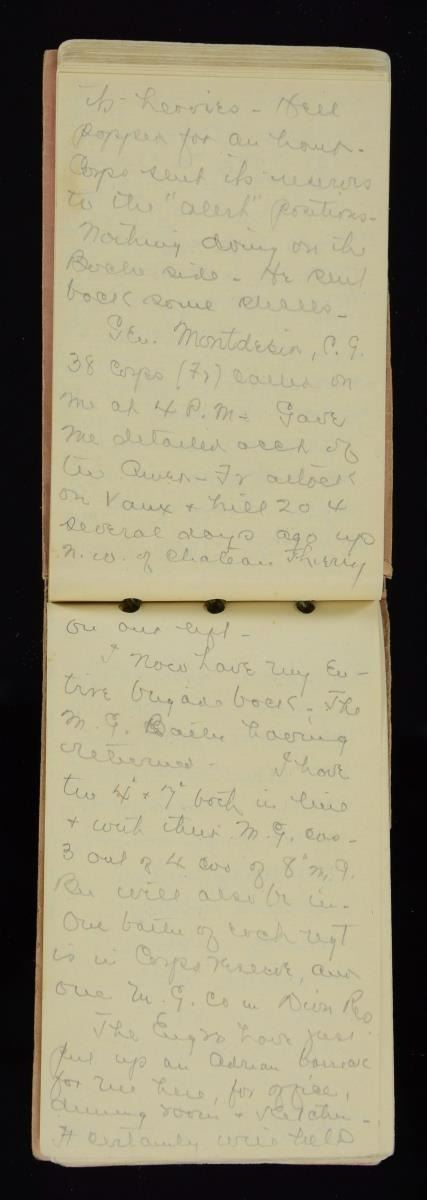 its heavies - Hell
popped for an hour -
Corps sent its reserves
to the "alert" positions -
Nothing doing on the
Boche side - He sent
back some shells -
Gen. Montdesir, C.G.
38 Corps (Fr) called on
me at 4 P.M. - Gave
me detailed acct of
the Amer - Fr attack
on Vaux & hill 204
several days ago up
N.W. of Chateau Thierry
on our left -
I now have my en-
tire brigade back - The
M.G. Battn having
returned - I have
the 4" & 7" both in line
& with their M.G. cos -
3 out of 4 cos of 8" M.G.
Bn will also be in -
One battn of each regt
is in Corps reserve, and
one M.G. Co in Divn Res
The Engrs have just
put up an Adrian barrack
for me here, for office,
dining room & kitchen -
It certainly will help